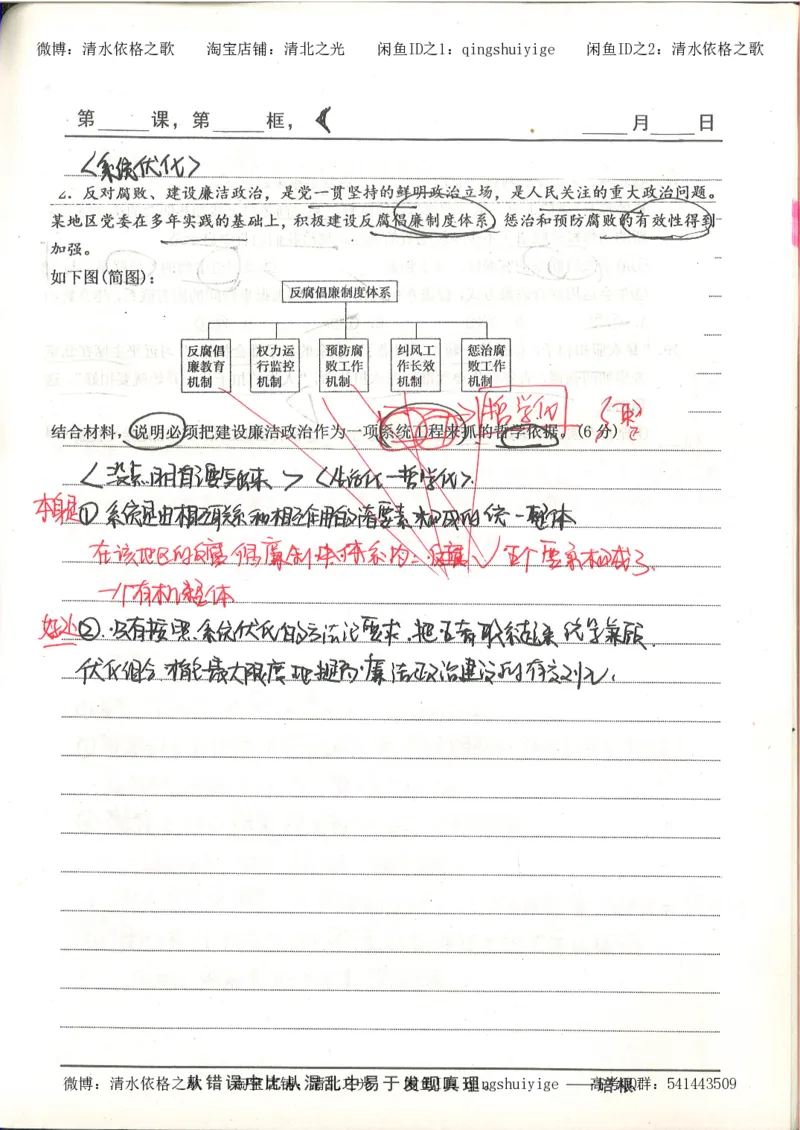 微博：清水依格之歌 淘宝店铺：清北之光 闲鱼ID之1：qingshuiyige 闲鱼ID之2：清水依格之歌
第 课，第 框， 月 日
<系统优化>
2．反对腐败、建设廉洁政治，是党一贯坚持的鲜明政治立场，是人民关注的重大政治问题。
某地区党委在多年实践的基础上，积极建设反腐倡廉制度体系，惩治和预防腐败的有效性得到
加强。
如下图(简图)：
反腐倡廉制度体系
反腐倡廉教育机制 权力运行监控机制 预防腐败工作机制 纠风工作长效机制 惩治腐败工作机制
哲学化
结合材料，说明必须把建设廉洁政治作为一项系统工程来抓的哲学依据。(6分)
<生活化—哲学化>.
本身是① 系统是由相互联系和相互作用的诸要素构成的统一整体
在该地区的反腐倡廉制度体系内 五个要素构成了
一个有机整体
好处②.只有按照系统优化的方法论要求，把五者联系起来统筹兼顾.
优化组合 才能最大限度地提高廉洁政治建设的有效性.
微博：清水依格之歌 淘宝店铺：清北之光 qingshuiyige 高考QQ群：541443509
从错误中比从混乱中易于发现真理。 ——培根